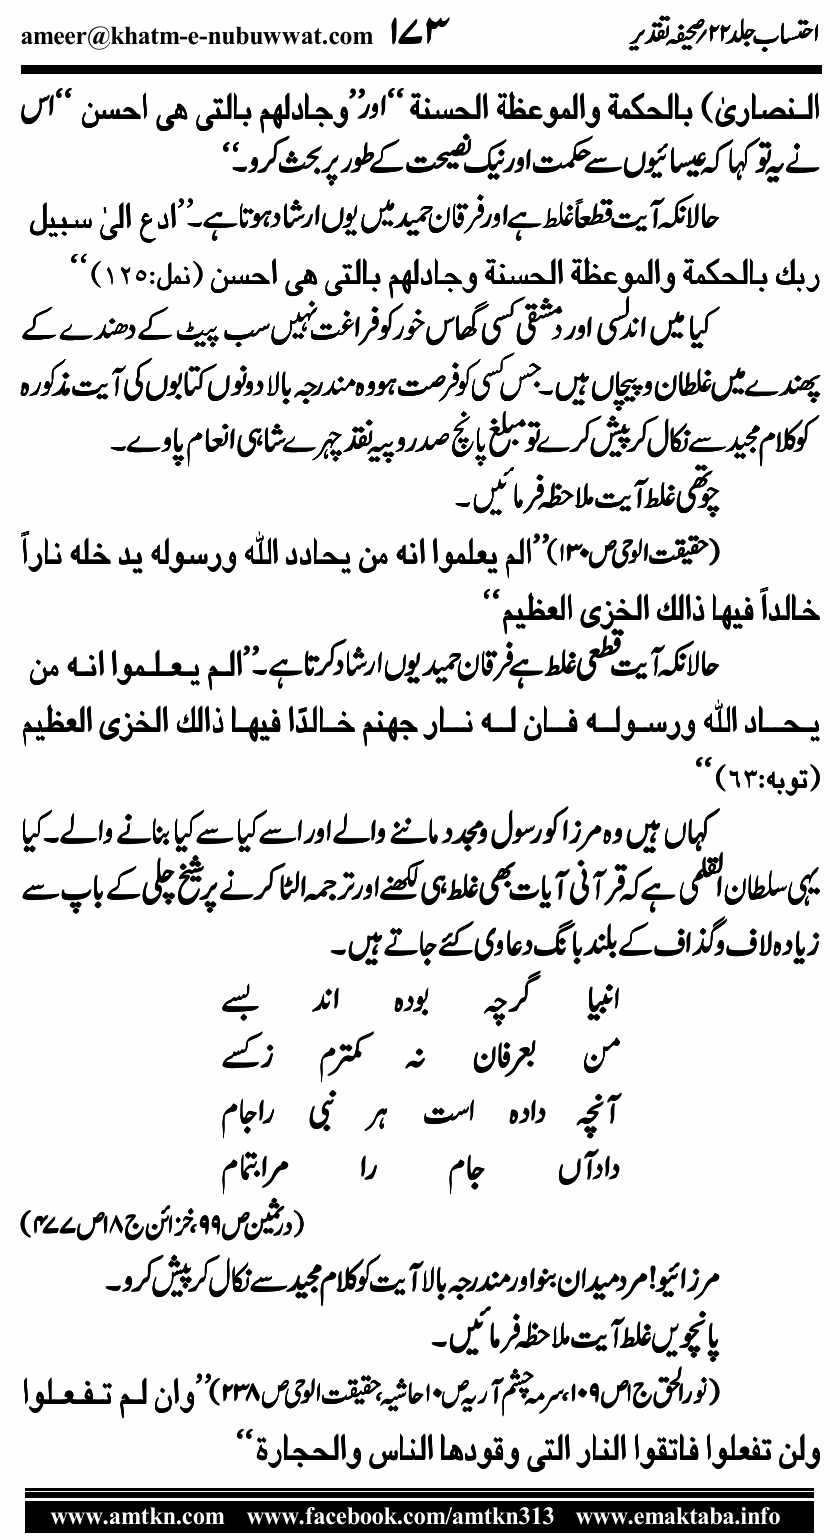 احتساب جلد ۲۲؍صحیفہ تقدیر ۱۷۳ ameer@khatm-e-nubuwwat.com
النصاریٰ) بالحکمة والموعظة الحسنة ‘‘اور’’وجادلهم بالتی هی احسن ‘‘اس
نے یہ تو کہا کہ عیسائیوں سے حکمت اور نیک نصیحت کے طور پر بحث کرو۔‘‘
حالانکہ آیت قطعاً غلط ہے اور فرقان حمید میں یوں ارشاد ہوتا ہے۔’’ادع الیٰ سبیل
ربك بالحکمة والموعظة الحسنة وجادلهم بالتی هی احسن (نمل:۱۲۵)‘‘
کیا میں اندلسی اور دمشقی کسی گھاس خور کو فراغت نہیں سب پیٹ کے دھندے کے
پھندے میں غلطان و پیچاں ہیں۔ جس کسی کو فرصت ہو وہ مندرجہ بالا دونوں کتابوں کی آیت مذکورہ
کو کلام مجید سے نکال کر پیش کرے تو مبلغ پانچ صد روپیہ نقد چہرے شاہی انعام پاوے۔
چوتھی غلط آیت ملاحظہ فرمائیں۔
(حقیقت الوحی ص۱۳۰)’’الم یعلموا انه من یحادد الله ورسوله ید خله ناراً
خالداً فیها ذالك الخزی العظیم‘‘
حالانکہ آیت قطعی غلط ہے فرقان حمید یوں ارشاد کرتا ہے۔’’الم یعلموا انه من
یحاد الله ورسوله فان له نار جهنم خالدًا فیها ذالك الخزی العظیم
(توبه:۶۳)‘‘
کہاں ہیں وہ مرزا کو رسول و مجدد ماننے والے اور اسے کیا سے کیا بنانے والے۔ کیا
یہی سلطان القلمی ہے کہ قرآنی آیات بھی غلط ہی لکھنے اور ترجمہ الٹا کرنے پر شیخ چلی کے باپ سے
زیادہ لاف و گذاف کے بلند بانگ دعاوی کئے جاتے ہیں۔
انبیا گرچہ بودہ اند بسے
من بعرفان نہ کمترم زکسے
آنچہ دادہ است ہر نبی راجام
دادآں جام را مرابتمام
(درثمین ص۹۹، خزائن ج۱۸ ص۴۷۷)
مرزائیو! مرد میدان بنو اور مندرجہ بالا آیت کو کلام مجید سے نکال کر پیش کرو۔
پانچویں غلط آیت ملاحظہ فرمائیں۔
(نورالحق ج۱ ص۱۰۹، سرمہ چشم آریہ ص۱۰ حاشیہ، حقیقت الوحی ص۲۳۸)’’وان لم تفعلوا
ولن تفعلوا فاتقوا النار التی وقودها الناس والحجارة‘‘
www.amtkn.com www.facebook.com/amtkn313 www.emaktaba.info